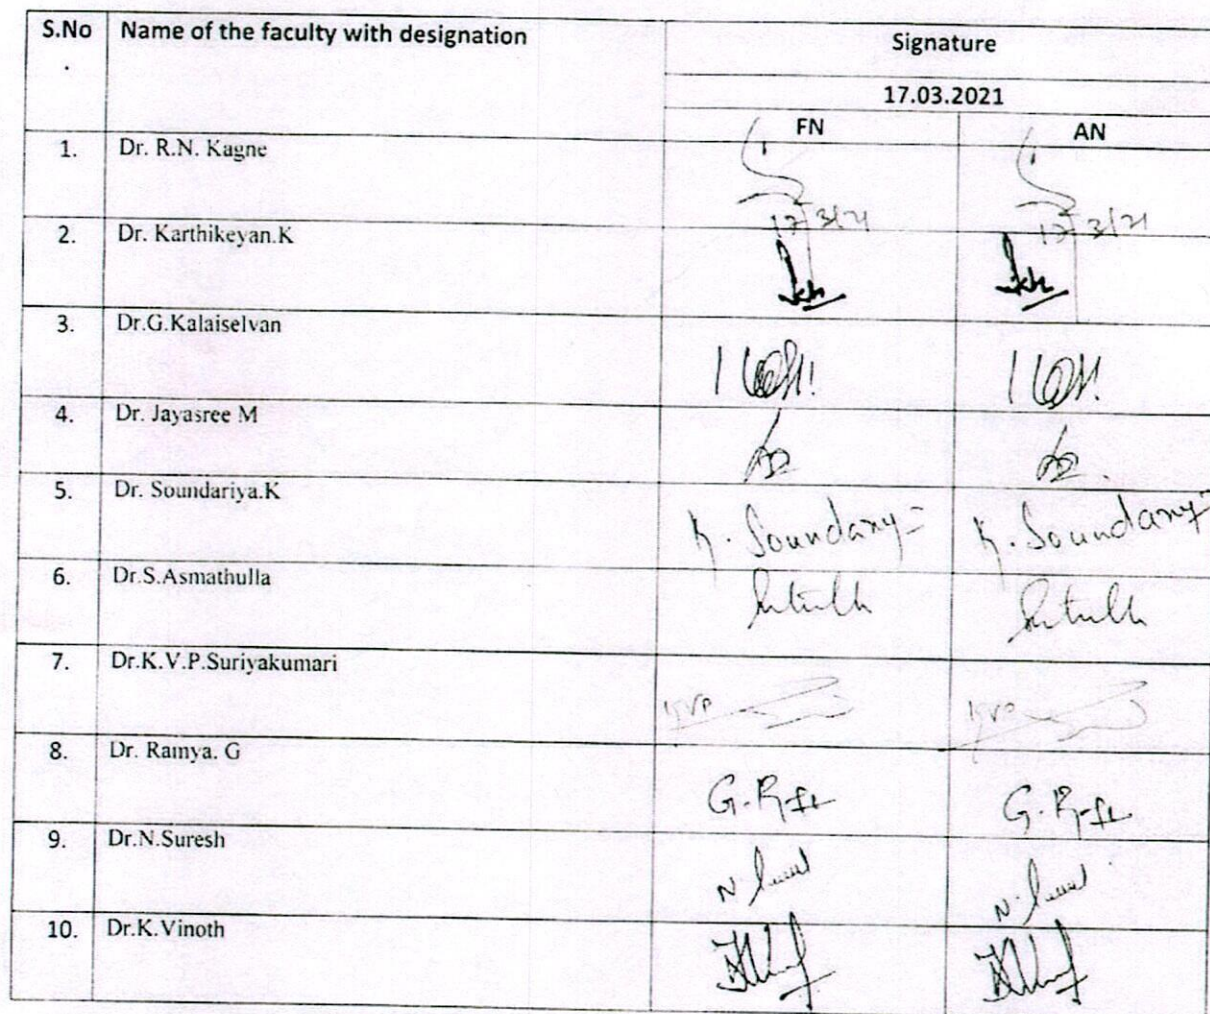 S.No Name of the faculty with designation Signature
.
17.03.2021
FN AN
1. Dr. R.N. Kagne
17/3/21 17/3/21
2. Dr. Karthikeyan.K
3. Dr.G.Kalaiselvan
4. Dr. Jayasree M
5. Dr. Soundariya.K K. Soundary K. Soundary
6. Dr.S.Asmathulla
7. Dr.K.V.P.Suriyakumari KVP KVP
8. Dr. Ramya. G
9. Dr.N.Suresh
10. Dr.K.Vinoth